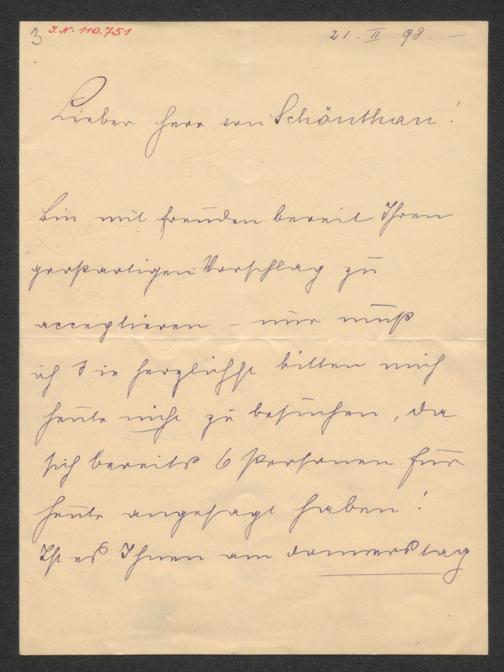 3 I.N. 110.751
21. II. 98. –
Lieber Herr von Schönthan!
Bin mit Freuden bereit Ihren
großartigen Vorschlag zu
acceptieren – nur muß
ich Sie herzlichst bitten mich
heute nicht zu besuchen, da
sich bereits 6 Personen für
heute angesagt haben!
Ist es Ihnen am Donnerstag